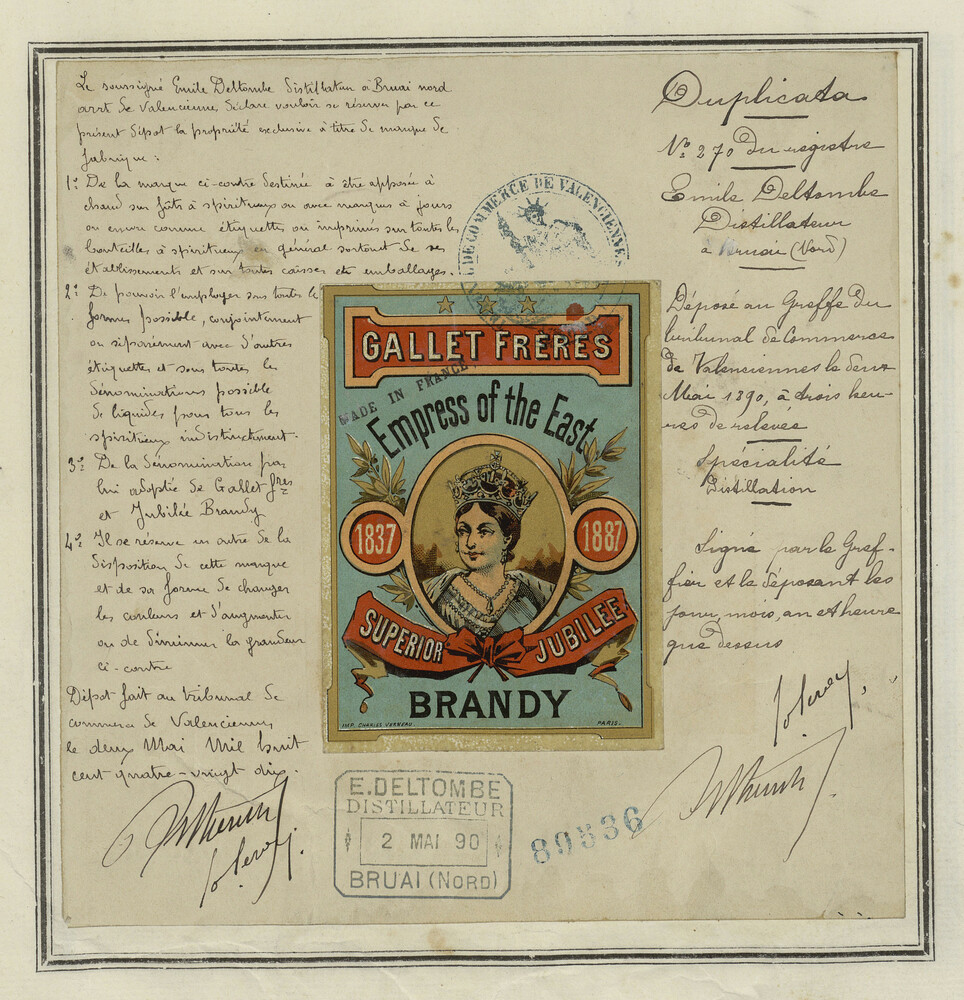 Le soussigné Emile Deltombe Distillateur à Bruai nord
arrt de Valencienne déclare vouloir se réserver par ce
présent dépot la propriété exclusive à titre de marque de
fabrique :
1º De la marque ci-contre destinée à être apposée à
chaud sur fûts à spiritueux ou avec marques à jours
ou encore comme étiquettes ou imprimés sur toutes les
bouteilles à spiritueux en général sortant de ses
établissements et sur toutes caisses et emballages.
2º De pouvoir l'employer sous toutes les
formes possible, conjointement
ou séparément avec d'autres
étiquettes et sous toutes les
dénominations possible
de liquides pour tous les
spiritueux indistinctement.
3º De la dénomination par
lui adoptée de Gallet frès
et Jubilée Brandy
4º Il se réserve en outre de la
disposition de cette marque
et de sa forme de changer
les couleurs et d'augmenter
ou de diminuer la grandeur
ci-contre
Dépot fait au tribunal de
commerce de Valenciennes
le deux Mai Mil huit
cent quatre-vingt dix.
Leroy
DE COMMERCE DE VALENCIENNES
GALLET FRÈRES
MADE IN FRANCE
Empress of the East
1837
1887
SUPERIOR JUBILEE
BRANDY
IMP. CHARLES VERNEAU PARIS.
E. DELTOMBE
DISTILLATEUR
2 MAI 90
BRUAI (NORD)
89536
Duplicata
Nº 270 du registre
Emile Deltombe
Distillateur
à Bruai (Nord)
Déposé au Greffe du
tribunal de Commerce
de Valenciennes le deux
Mai 1890, à trois heu-
res de relevée
Spécialité
Distillation
Signé par le Gref-
fier et le déposant les
jour, mois, an et heure
que dessus
Leroy